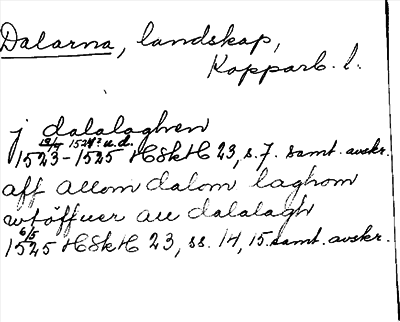 Dalarna, landskap,
Kopparb. l.
j dalalaghen
19/7 1524? u.d.
1523-1525 HSkH 23, s. 7. samt. avskr.
aff allom dalom laghom
wtöffuer au dalalagh
6/5
1525 HSkH 23, ss. 14, 15. samt. avskr.